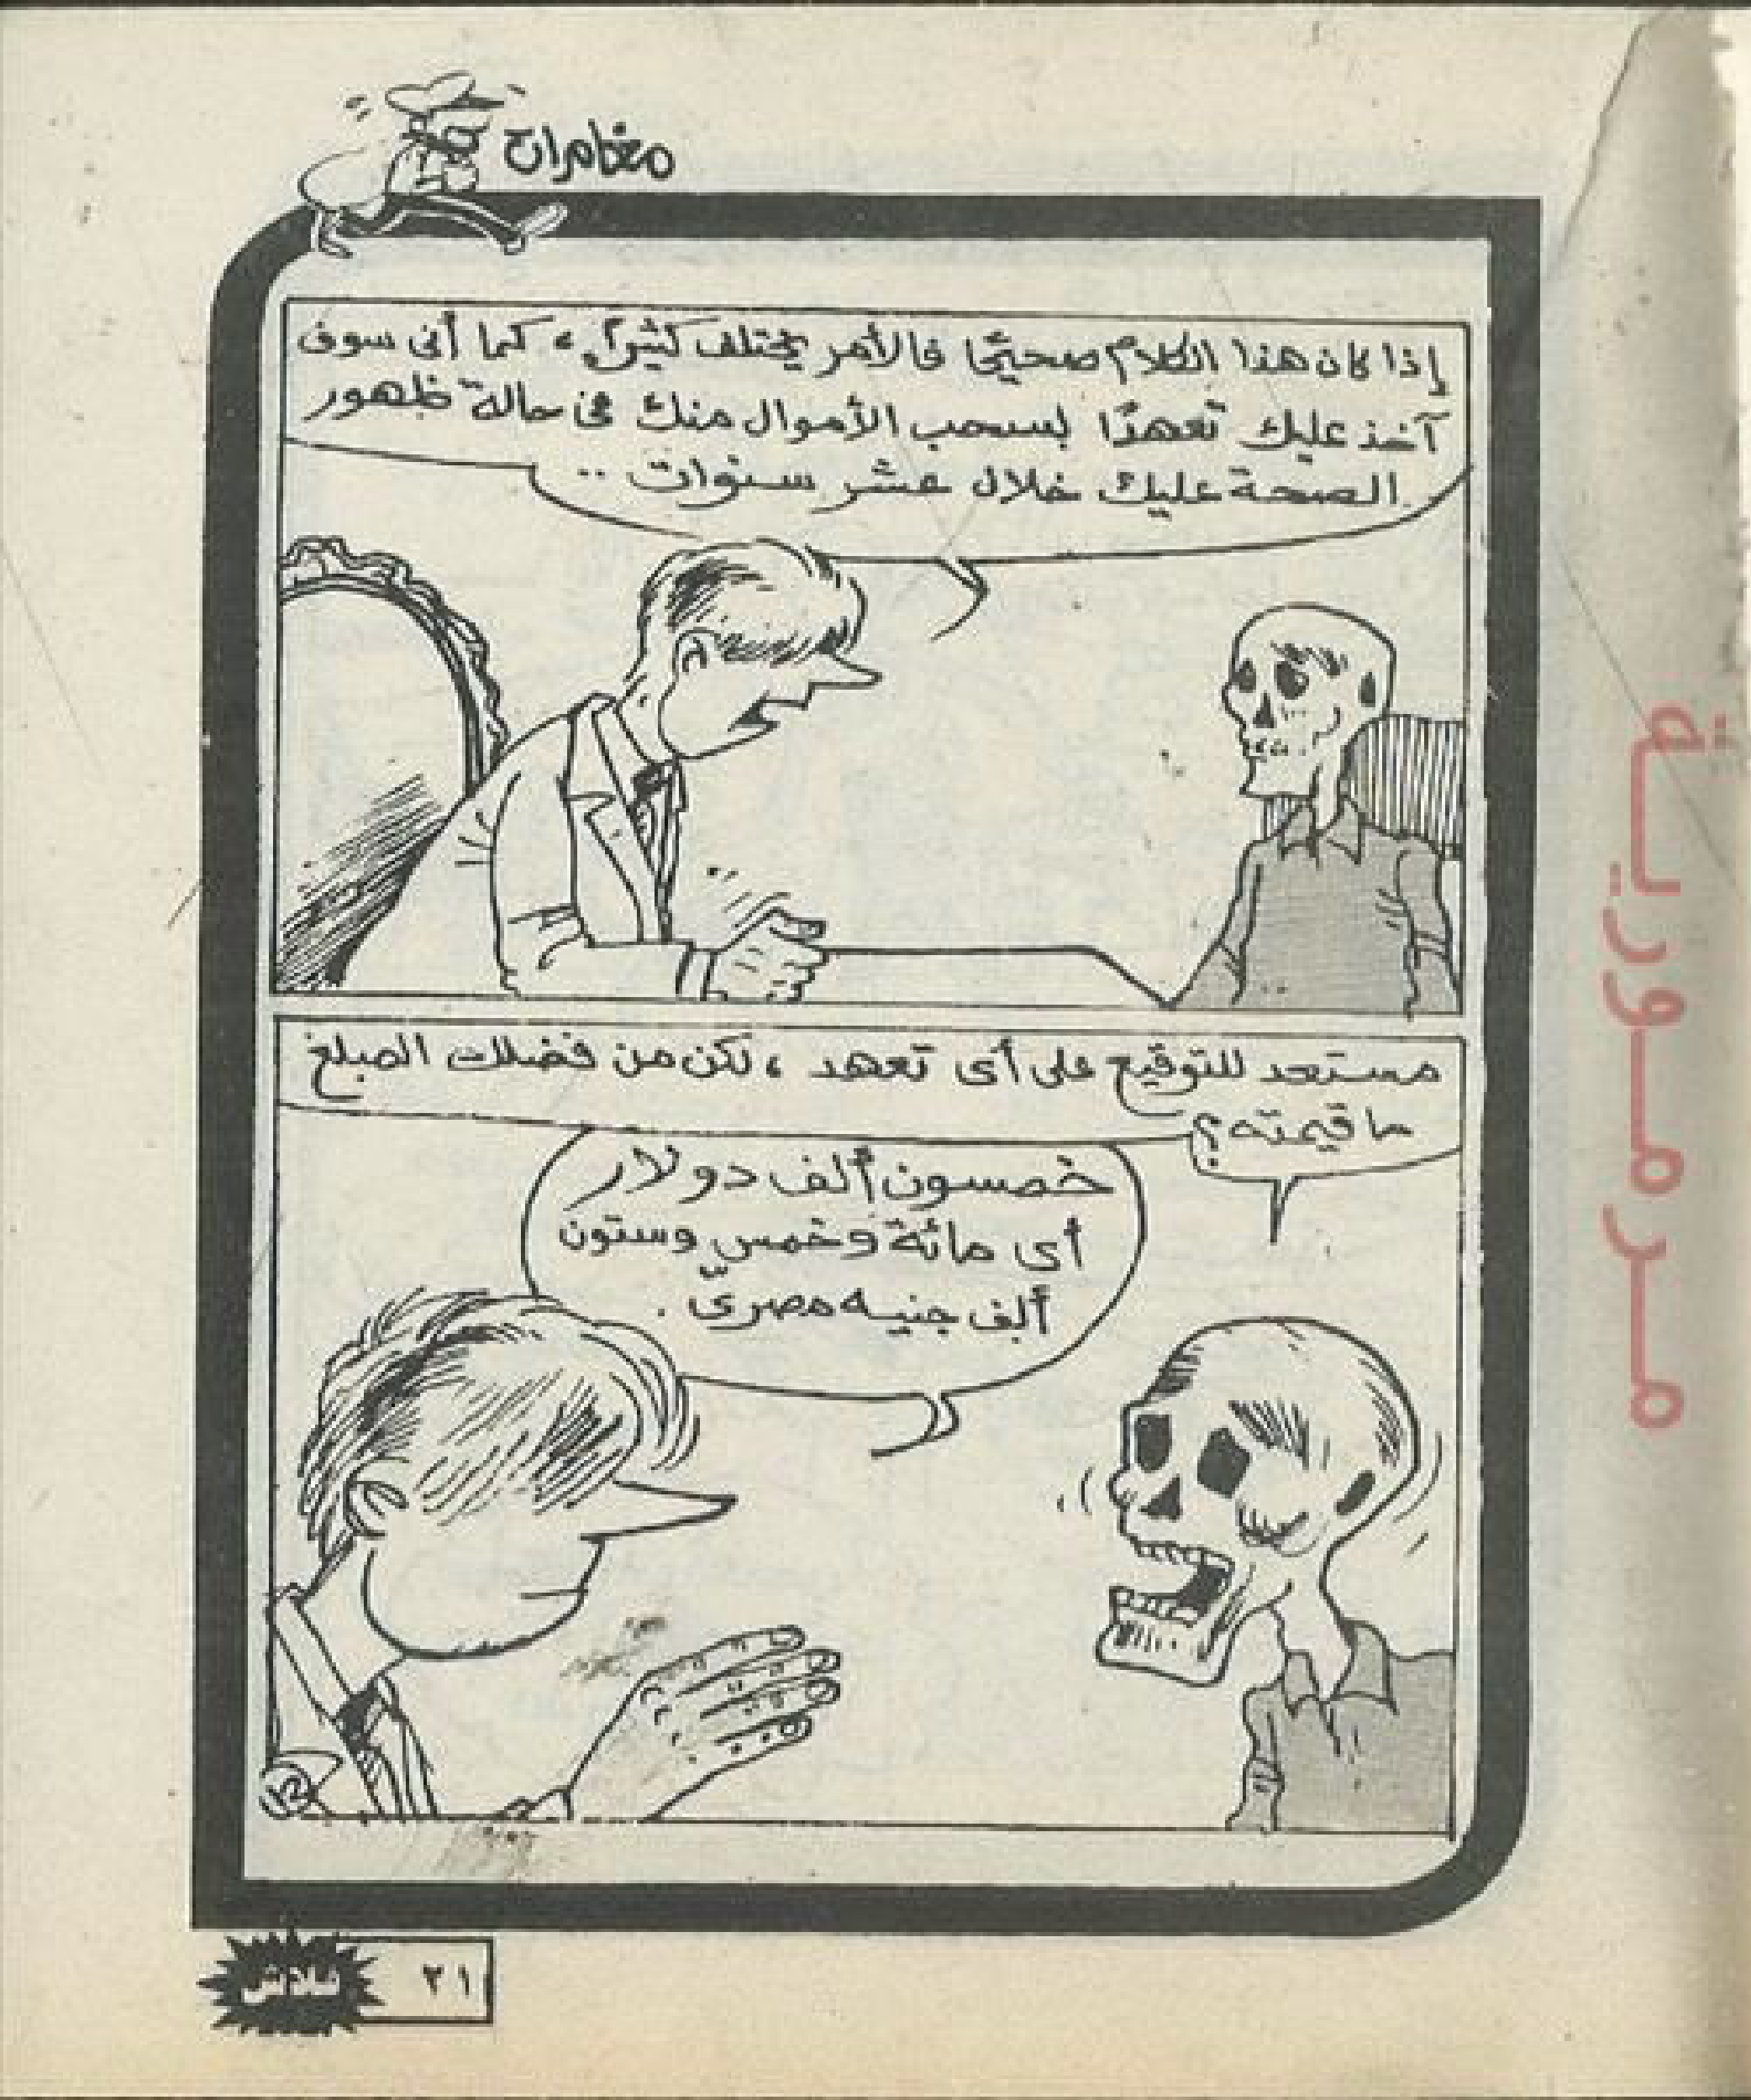 مغامرات
إذا كان هذا الكلام صحيحًا فالأمر يختلف كثيرًا، كما أنى سوف
آخذ عليك تعهدًا بسحب الأموال منك فى حالة ظهور
الصحة عليك خلال عشر سنوات ..
مستعد للتوقيع على أى تعهد، لكن من فضلك المبلغ
ما قيمته؟
خمسون ألف دولار
أى مائة وخمس وستون
ألف جنيه مصرىّ.
١٢
فلاش
٢١
مرمورية